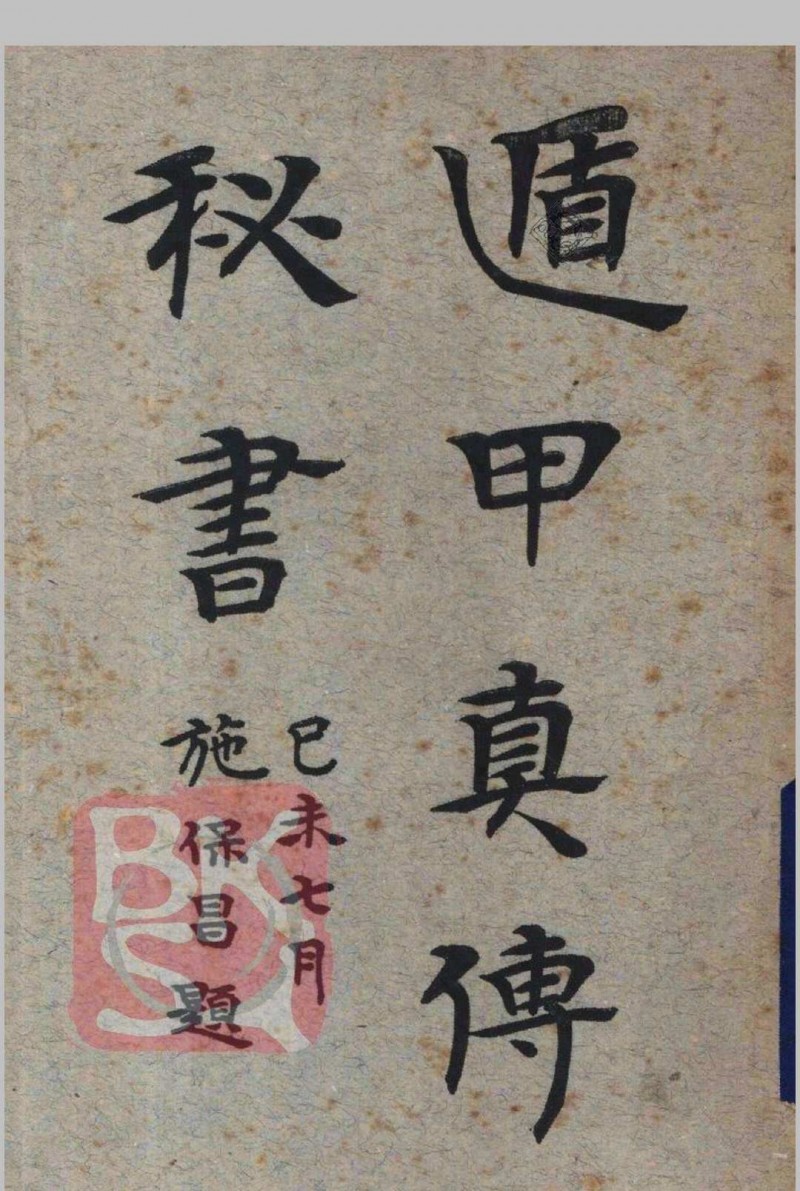 遁甲真傳
秘書
己未七月
施保昌題
BKS